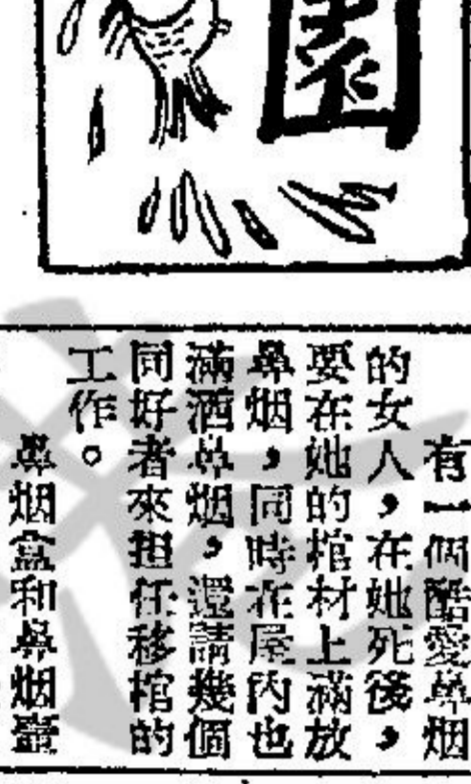 園
有一個酷愛鼻烟
的女人，在她死後，
要在她的棺材上滿放
鼻烟，同時在屋內也
滿洒鼻烟，還請幾個
同好者來担任移棺的
工作。
鼻烟盒和鼻烟壼